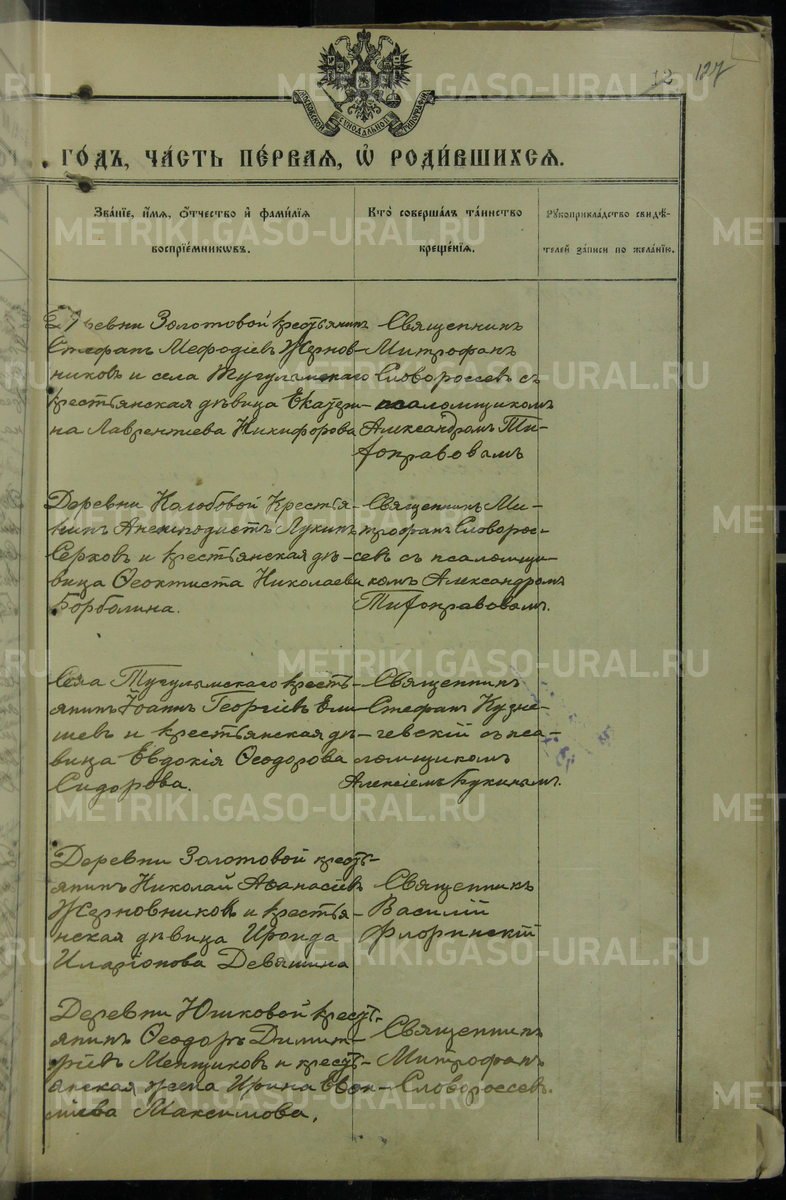 12 127
МОСКОВСКОЙ СѴНОДАЛЬНОЙ ТИПОГРАФІИ
ГО́ДЪ, ЧА́СТЬ ПЕ́РВАѦ, Ѡ҆ РОДИ́ВШИХСѦ.
Зва́нїе, и҆́мѧ, ѻ҆́тчество и҆ фами́лїѧ
воспрїе́мникѡвъ.
Кто̀ соверша́лъ та́инство
креще́нїѧ.
Рꙋкоприкла́дство свидѣ́-
телей за́писи по жела́нїю.
Деревни Золотовой крестьянинъ
Стефанъ Мефодіевъ Жернов-
никовъ и села Тугулымскаго
крестьянская дѣвица Екатери-
на Лаврентіева Никифорова
Священникъ
Митрофанъ
Словороссовъ съ
псаломщикомъ
Александромъ Ти-
фоправовамъ
Деревни Колобовой Крестья-
нинъ Анемподистъ Лукинъ
Серковъ и крестьянская дѣ-
вица Ѳеоктиста Николаева
Борболина.
Священникъ Ми-
трофанъ Словорос-
совъ съ псаломщи-
комъ Александромъ
Тифоправовамъ.
Села Тугулымскаго кресть-
янинъ Іоаннъ Георгіевъ Ели-
шевъ и крестьянская дѣ-
вица Евдокія Ѳеодорова
Сидорова.
Священникъ
Стефанъ Кузне-
чевскій съ пса-
ломщикомъ
Алексіемъ Букинымъ.
Деревни Золотовой крест-
янинъ Николай Аѳанасіевъ
Жерновниковъ и крестья-
нская дѣвица Ироида
Иларіонова Девяшина
Священникъ
Василій
Флоринскій
Деревни Юшковой крест-
янинъ Ѳеодоръ Димит-
ріевъ Менщиковъ и кресть-
янская жена Ирина
Максимова.
Священникъ
Митрофанъ
Словороссовъ.
METRIKI.GASO-URAL.RU